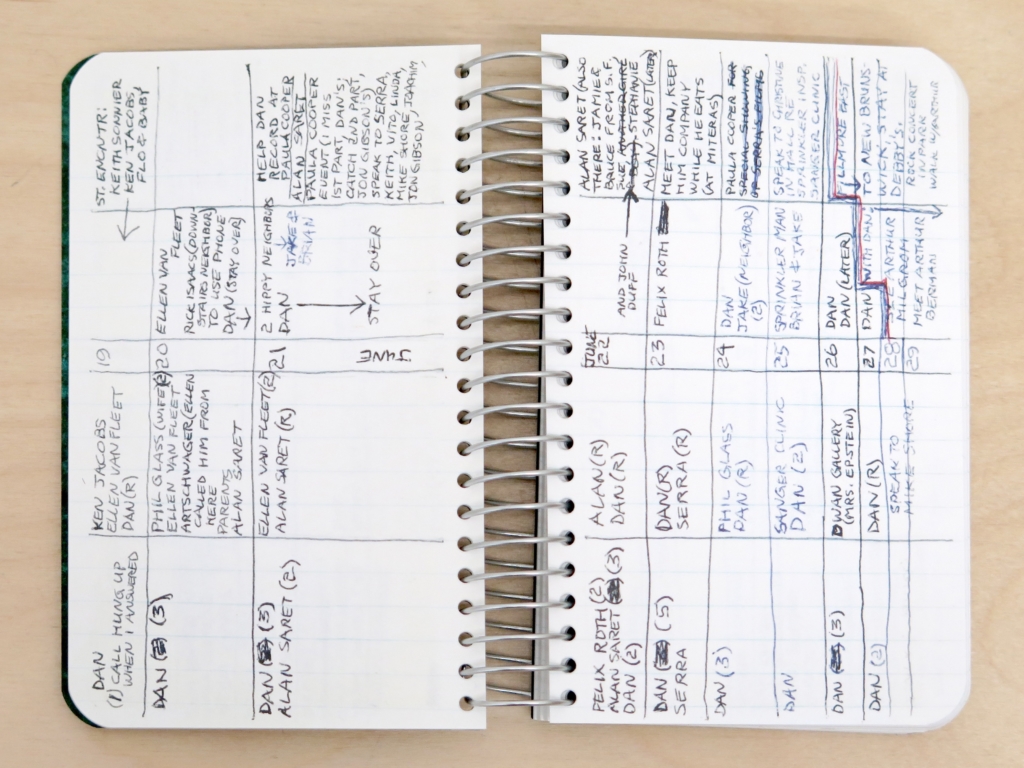 DAN
(1) CALL HUNG UP
WHEN I ANSWERED
KEN JACOBS
ELLEN VAN FLEET
DAN (R)
19
ST. EMONTRI:
KEITH SONNIER
KEN JACOBS,
FLO & BABY
DAN (3)
PHIL GLASS (WIFE)
ELLEN VAN FLEET
ARTSCHWAGER (ELLEN
CALLED HIM FROM
HERE
PARENTS
ALAN SARET
20
ELLEN VAN
FLEET
RICK ISAACS (DOWN-
STAIRS NEIGHBOR)
TO USE PHONE
DAN (STAY OVER)
DAN (3)
ALAN SARET (2)
ELLEN VAN FLEET (2)
ALAN SARET (R)
21
JUNE
2 HIPPY NEIGHBORS
DAN
JAKE &
BRIAN
STAY OVER
HELP DAN
RECORD AT
PAULA COOPER
ALAN SARET
PAULA COOPER
EVENT (I MISS
1ST PART, DAN'S;
CATCH 2ND PART
JON GIBSON'S)
SPEAK SERRA,
KEITH, VITO, LINDA,
MIKE SHORE, JOACHIM,
JON GIBSON
FELIX ROTH (2)
ALAN SARET (3)
DAN (2)
ALAN (R)
DAN (R)
JUNE
22
AND JOHN
DUFF
ALAN SARET (ALSO
THERE: JAMIE,
BRUCE FROM S.F.,
SUE,
ALAN SARET (LATER)
DAN (5)
SERRA
DAN (R)
SERRA (R)
23
FELIX ROTH
MEET DAN, KEEP
HIM COMPANY
WHILE HE EATS
(AT MITERAS)
DAN (3)
PHIL GLASS
DAN (R)
24
DAN
JAKE (NEIGHBOR)
(2)
PAULA COOPER FOR
SPECIAL SHOWING
OF SERRA PIECE
DAN
SANGER CLINIC
DAN (2)
25
SPRINKLER MAN
BRIAN & JAKE
SPEAK TO GIBSTINE
IN HALL RE
SPRINKLER INSP.
SANGER CLINIC
DAN (3)
DWAN GALLERY
(MRS. EPSTEIN)
26
DAN
DAN (LATER)
FILMORE EAST
DAN (2)
DAN (R)
27
DAN
WITH DAN,
TO NEW BRUNS-
WICK, STAY AT
DEBBY'S
SPEAK TO
MIKE SHORE
28
ARTHUR
MILGRAM
ROCK CONCERT
IN PARK
29
MEET ARTHUR
BERMAN
WALK W/ARTHUR